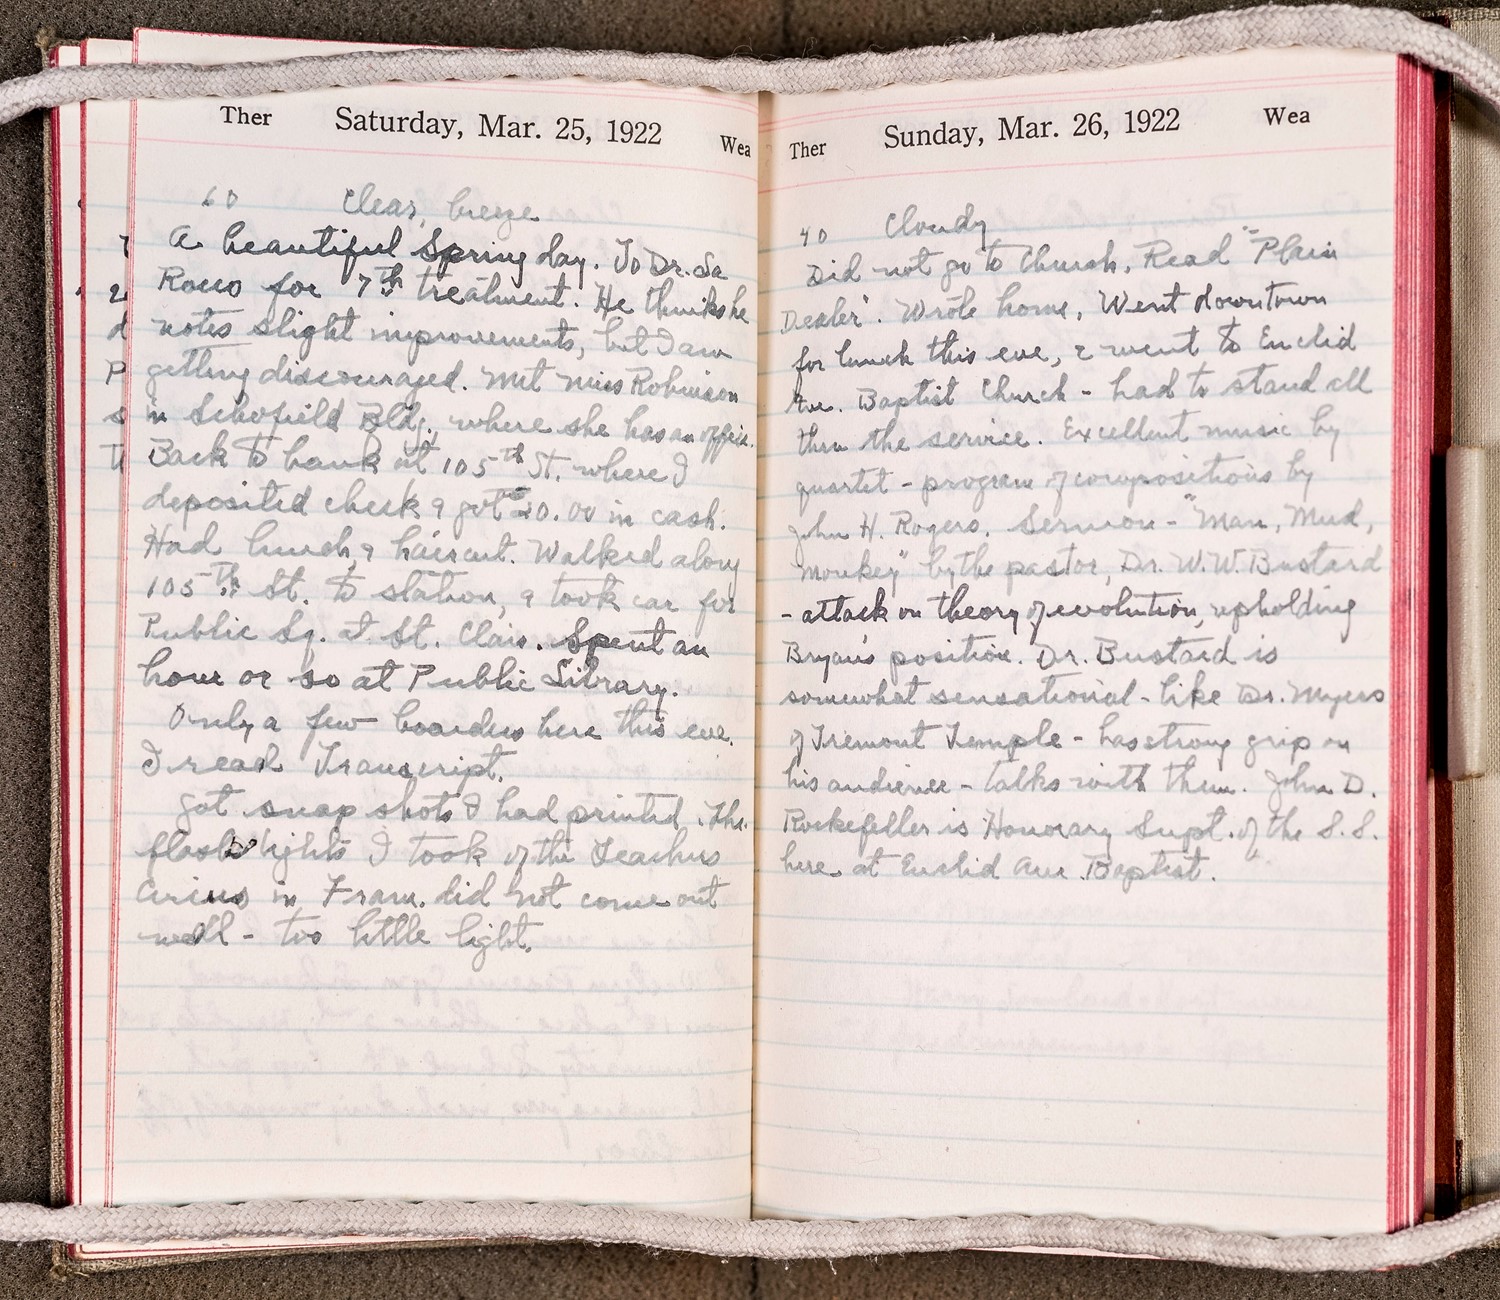 Ther Saturday, Mar. 25, 1922 Wea
60 Clear, breeze
A beautiful Spring day. To Dr. La
Rocco for 7th treatment. He thinks he
notes slight improvements, but I am
getting discouraged. Met Miss Robinson
in Schofield Bldg., where she has an office.
Back to bank at 105th St. where I
deposited check & got $20.00 in cash.
Had lunch, & haircut. Walked along
105th St. to station, & took car for
Public Sq. at St. Clair. Spent an
hour or so at Public Library.
Only a few boarders here this eve.
I read Transcript.
Got snap shots I had printed. The
flash lights I took of the Teachers
Circus in Fram. did not come out
well - too little light.
Ther Sunday, Mar. 26, 1922 Wea
40 Cloudy
Did not go to Church. Read "Plain
Dealer". Wrote home. Went downtown
for lunch this eve, & went to Euclid
Ave. Baptist Church - had to stand all
thru the service. Excellent music by
quartet - program of compositions by
John H. Rogers. Sermon - "Man, Mud,
Monkey" by the pastor, Dr. W. W. Bustard
- attack on theory of evolution, upholding
Bryan's position. Dr. Bustard is
somewhat sensational - like Dr. Myers
of Tremont Temple - has strong grip on
his audience - talks with them. John D.
Rockefeller is Honorary Supt. of the S. S.
here at Euclid Ave. Baptist.